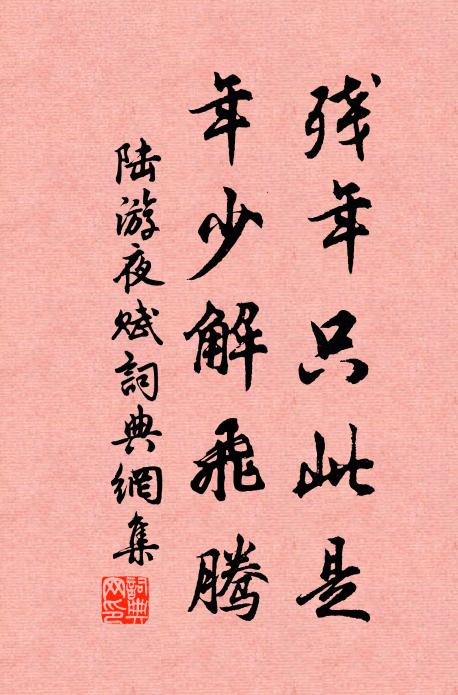 残年只此是
年少解飛騰
陆游夜赋詞典網集
詞典网印